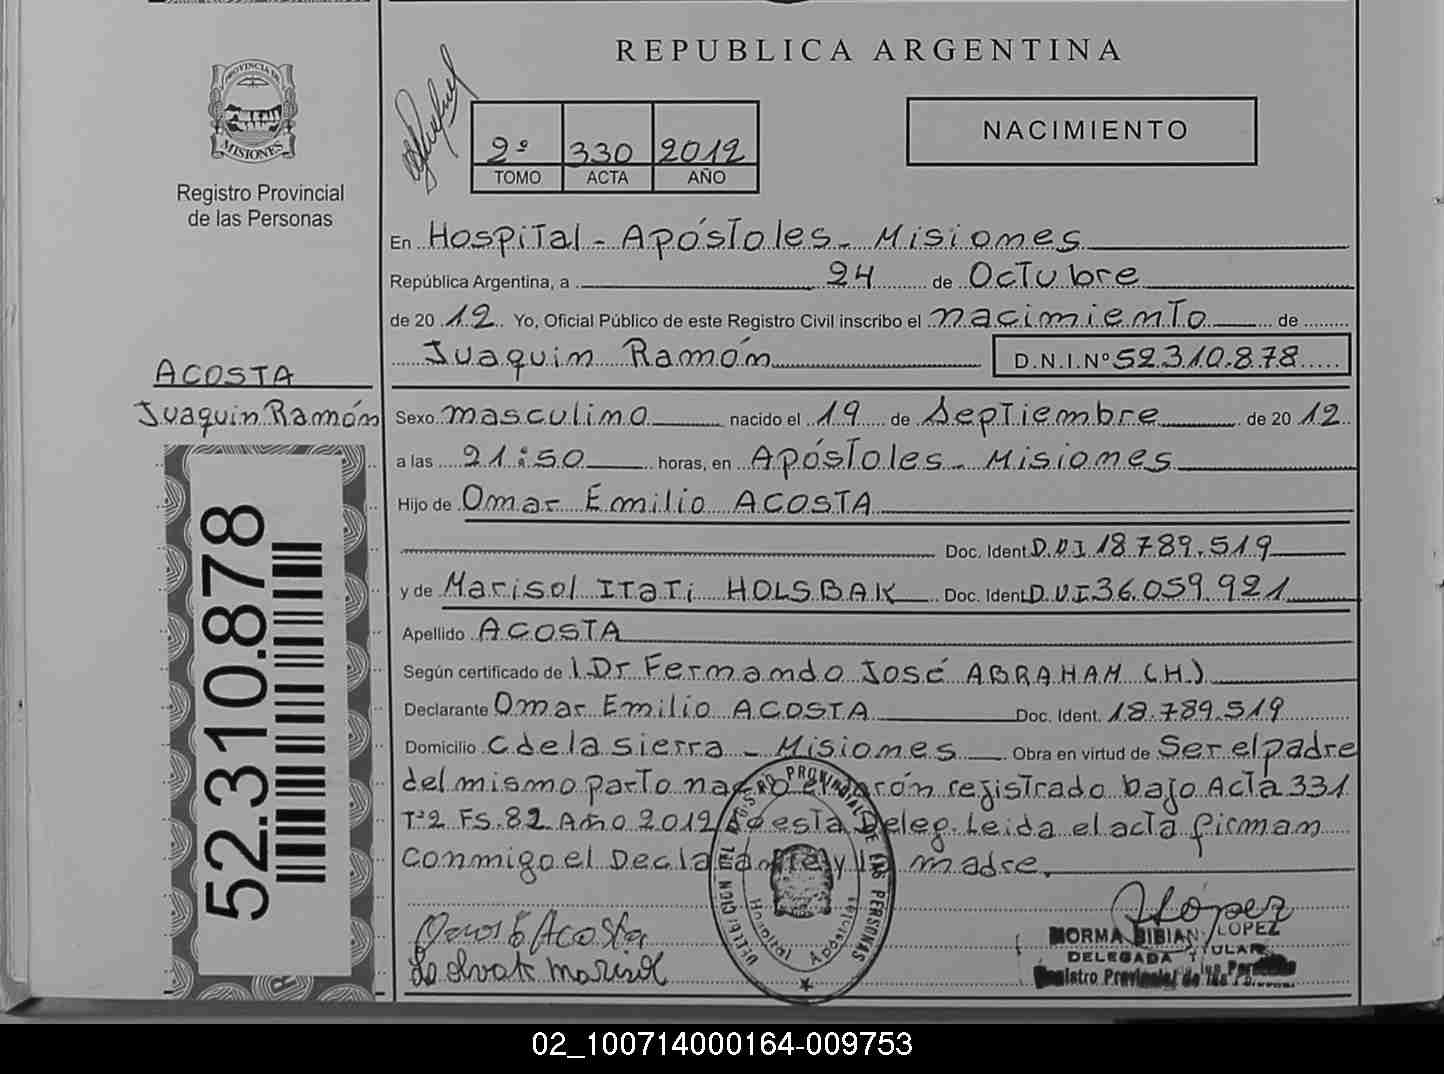 REPUBLICA ARGENTINA
PROVINCIA DE
MISIONES
Registro Provincial
de las Personas
2º 330 2012
TOMO ACTA AÑO
NACIMIENTO
En Hospital - Apóstoles - Misiones
República Argentina, a 24 de Octubre
de 2012 Yo, Oficial Público de este Registro Civil inscribo el nacimiento de
Juaquin Ramón D.N.I.Nº 52.310.878
ACOSTA
Juaquin Ramón
Sexo masculino nacido el 19 de Septiembre de 2012
a las 21:50 horas, en Apóstoles - Misiones
Hijo de Omar Emilio ACOSTA
Doc. Ident. D.U.I 18.789.519
y de Marisol Itati HOLSBAK Doc. Ident. D.U.I 36.059.921
Apellido ACOSTA
Según certificado de l Dr Fernando José ABRAHAM (H)
Declarante Omar Emilio ACOSTA Doc. Ident. 18.789.519
Domicilio C de la sierra - Misiones Obra en virtud de Ser el padre
del mismo parto nacio el varón registrado bajo Acta 331
Tº2 Fs. 82 Año 2012 de esta Deleg. Leida el acta firman
conmigo el Declarante y la madre.
52.310.878
Acosta
marisol
REGISTRO PROVINCIAL DE LAS PERSONAS
DELEGACION
Hospital Apóstoles
López
NORMA BIBIANA LOPEZ
DELEGADA TITULAR
Registro Provincial de las Personas
02_100714000164-009753